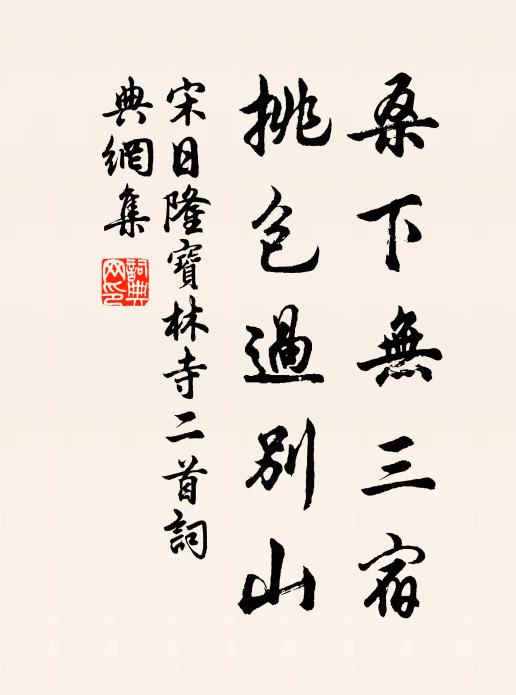 桑下無三宿
挑包過別山
宋日隆寶林寺二首詞
典網集
詞典網印